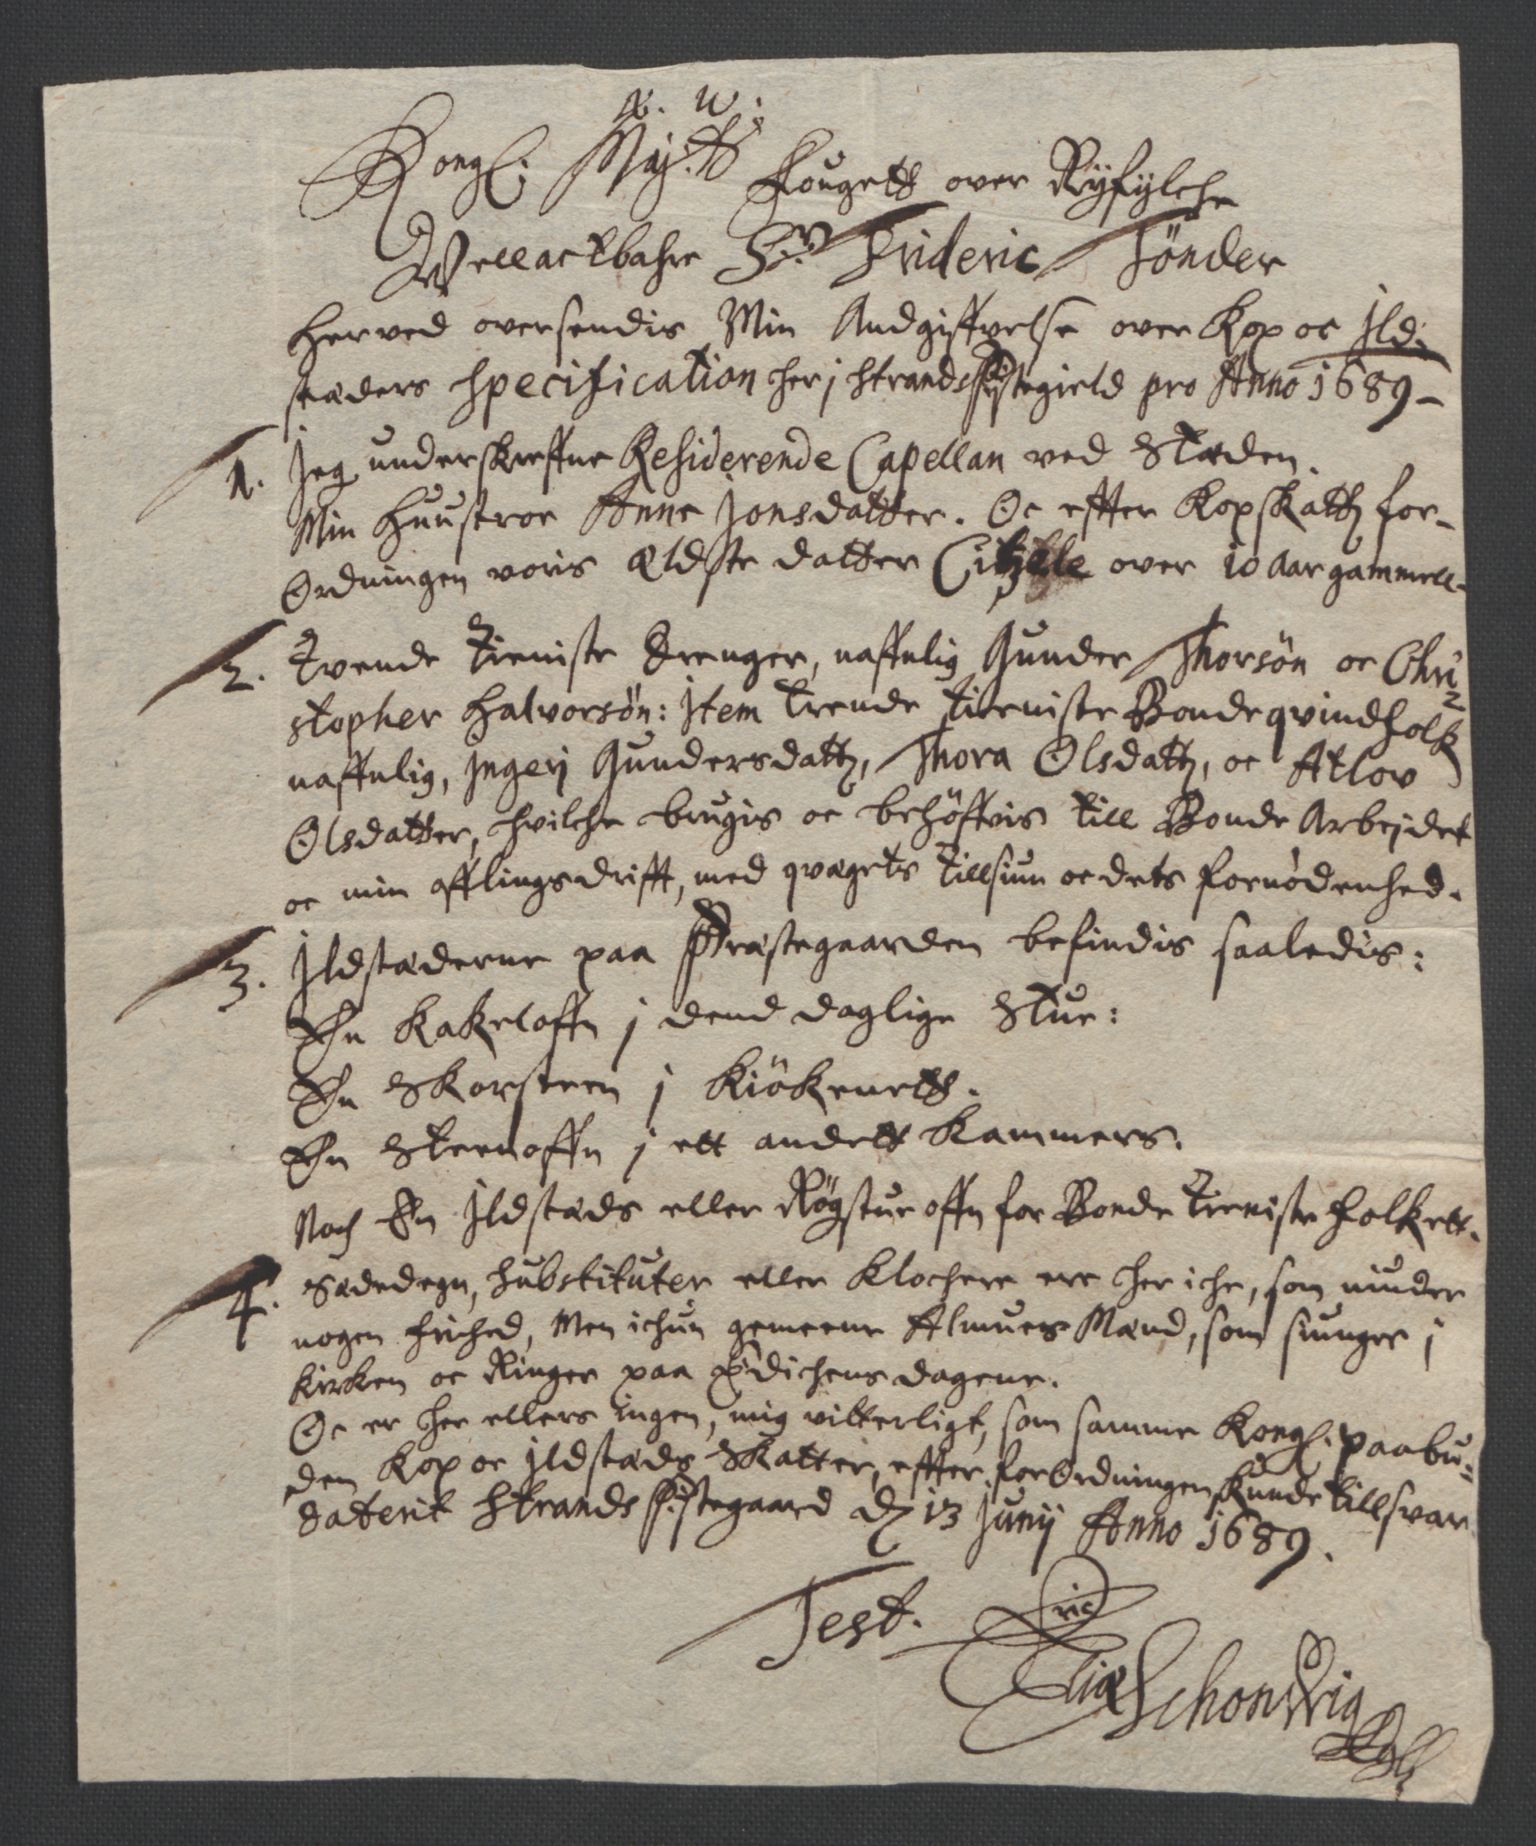 Kongl: Maj:tts
Fougett over Ryfylche
Wellactbahre Sr. Frideric Tönder
Herved oversendis Min Andgiffvelse over Kop oc Jld:
stæders Specification her j Strands Pr̃stegield pro Anno 1689-
1. Jeg underskreffne Residerende Capellan ved Stæden.
Min Huustroe Anne Jonsdatter. Oc effter Kopskattz for-
Ordningen voris Ældste datter Citzele over 10 Aar gammell-
2. Tvende tieniste drenger, naffnlig Gunder Thorsön oc Chri-
stopher Halvorsön: Jtem trende tieniste Bonde qvindfolk
naffnlig, Jngerj Gundersdattz, Thora Olsdattz, oc Atlov
Olsdatter, hvilche brugis oc behöffvis till Bonde Arbejdet
oc min afflingsdrifft, med qvægets tillsiun oc dets fornödenhed.
3. Jldstæderne paa Præstegaarden befindis saaledis:
En Kakeloffn j dend daglige Stue:
En Skorsteen j Kiökenett.
En Steenoffn j ett andett Kammers.
Noch En Jldstæds eller Rögstue offn for Bonde tieniste folkett.
4. Sædedegn, Substituter eller Klochere ere her iche, som niuder
nogen frihed, Men ichun gemeene Almues Mænd, som siunger j
Kirken oc Ringer paa Prædichens dagene.
Oc er her ellers ingen, mig vitterligt, som samme Kongl. paabu-
den Kop oc Jldstæds Skatter, effter forOrdningen kunde tillsvar.
Daterit Strands Pr̃stegaard dz 13 Junij Anno 1689.
Test. Eric
Eliæ Schonvvig